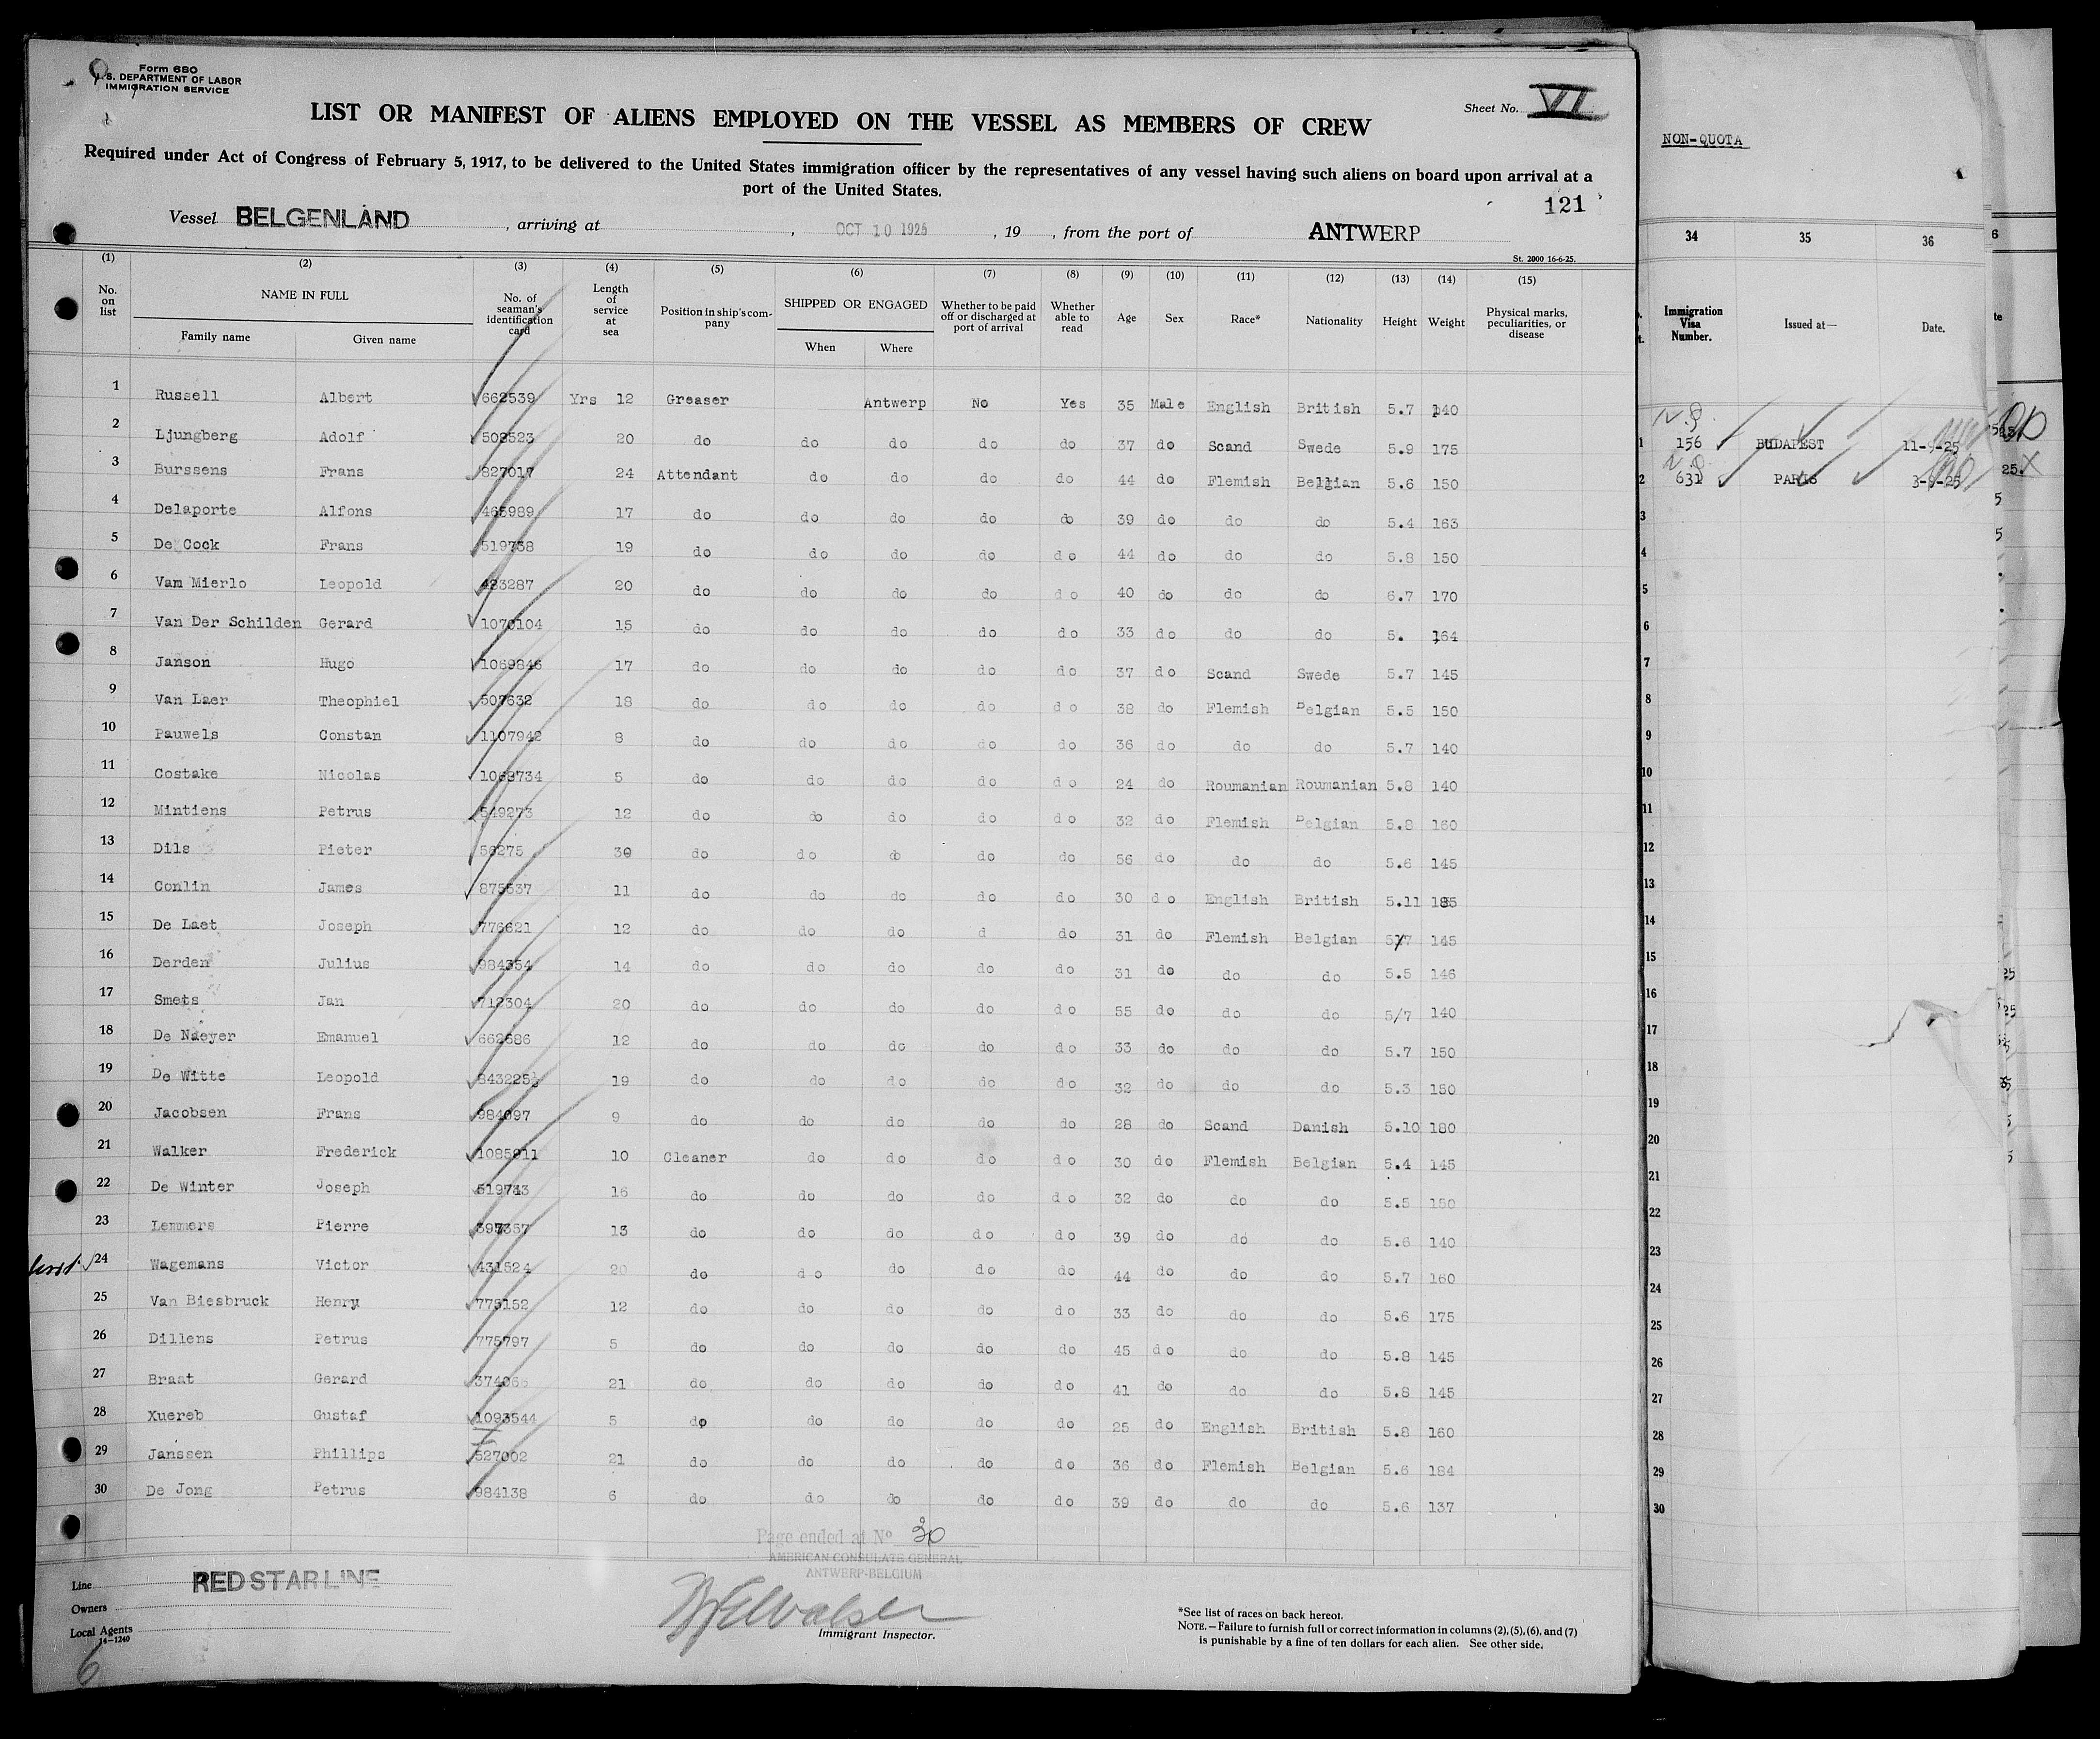 Form 680
U.S. DEPARTMENT OF LABOR
IMMIGRATION SERVICE
Sheet No. VI
LIST OR MANIFEST OF ALIENS EMPLOYED ON THE VESSEL AS MEMBERS OF CREW
Required under Act of Congress of February 5, 1917, to be delivered to the United States immigration officer by the representatives of any vessel having such aliens on board upon arrival at a
port of the United States.
121
Vessel BELGENLAND , arriving at , OCT 10 1925 , 19 , from the port of ANTWERP
St. 2000 16-6-25.
(1) (2) (3) (4) (5) (6) (7) (8) (9) (10) (11) (12) (13) (14) (15)
No. on list NAME IN FULL Family name Given name No. of seaman's identification card Length of service at sea Position in ship's company SHIPPED OR ENGAGED When Where Whether to be paid off or discharged at port of arrival Whether able to read Age Sex Race* Nationality Height Weight Physical marks, peculiarities, or disease
1 Russell Albert 662539 Yrs 12 Greaser Antwerp No Yes 35 Male English British 5.7 140
2 Ljungberg Adolf 502523 20 do do do do do 37 do Scand Swede 5.9 175
3 Burssens Frans 827017 24 Attendant do do do do 44 do Flemish Belgian 5.6 150
4 Delaporte Alfons 465989 17 do do do do do 39 do do do 5.4 163
5 De Cock Frans 519738 19 do do do do do 44 do do do 5.8 150
6 Van Mierlo Leopold 423287 20 do do do do do 40 do do do 6.7 170
7 Van Der Schilden Gerard 1070104 15 do do do do do 33 do do do 5. 164
8 Janson Hugo 1069846 17 do do do do do 37 do Scand Swede 5.7 145
9 Van Laer Theophiel 507632 18 do do do do do 38 do Flemish Belgian 5.5 150
10 Pauwels Constan 1107942 8 do do do do do 36 do do do 5.7 140
11 Costake Nicolas 1069734 5 do do do do do 24 do Roumanian Roumanian 5.8 140
12 Mintiens Petrus 549273 12 do do do do do 32 do Flemish Belgian 5.8 160
13 Dils Pieter 56275 30 do do do do do 56 do do do 5.6 145
14 Conlin James 875537 11 do do do do do 30 do English British 5.11 185
15 De Laet Joseph 776621 12 do do do d do 31 do Flemish Belgian 5/7 145
16 Derden Julius 984354 14 do do do do do 31 do do do 5.5 146
17 Smets Jan 712304 20 do do do do do 55 do do do 5/7 140
18 De Naeyer Emanuel 662686 12 do do do do do 33 do do do 5.7 150
19 De Witte Leopold 843225 19 do do do do do 32 do do do 5.3 150
20 Jacobsen Frans 984097 9 do do do do do 28 do Scand Danish 5.10 180
21 Walker Frederick 1085911 10 Cleaner do do do do 30 do Flemish Belgian 5.4 145
22 De Winter Joseph 519743 16 do do do do do 32 do do do 5.5 150
23 Lemmers Pierre 397357 13 do do do do do 39 do do do 5.6 140
24 Wagemans Victor 431524 20 do do do do do 44 do do do 5.7 160
25 Van Biesbruck Henry 775152 12 do do do do do 33 do do do 5.6 175
26 Dillens Petrus 775797 5 do do do do do 45 do do do 5.8 145
27 Braat Gerard 374066 21 do do do do do 41 do do do 5.8 145
28 Xuereb Gustaf 1093544 5 do do do do do 25 do English British 5.8 160
29 Janssen Phillips 527002 21 do do do do do 36 do Flemish Belgian 5.6 184
30 De Jong Petrus 984138 6 do do do do do 39 do do do 5.6 137
Page ended at No 30
AMERICAN CONSULATE GENERAL
ANTWERP-BELGIUM
Line RED STAR LINE
Owners
Local Agents
14-1240
6
Immigrant Inspector.
*See list of races on back hereof.
NOTE.—Failure to furnish full or correct information in columns (2), (5), (6), and (7)
is punishable by a fine of ten dollars for each alien. See other side.
NON-QUOTA
34 35 36
Immigration Visa Number. Issued at— Date.
1 156 BUDAPEST 11-9-25
2 631 PARIS 3-9-25
3
4
5
6
7
8
9
10
11
12
13
14
15
16
17
18
19
20
21
22
23
24
25
26
27
28
29
30